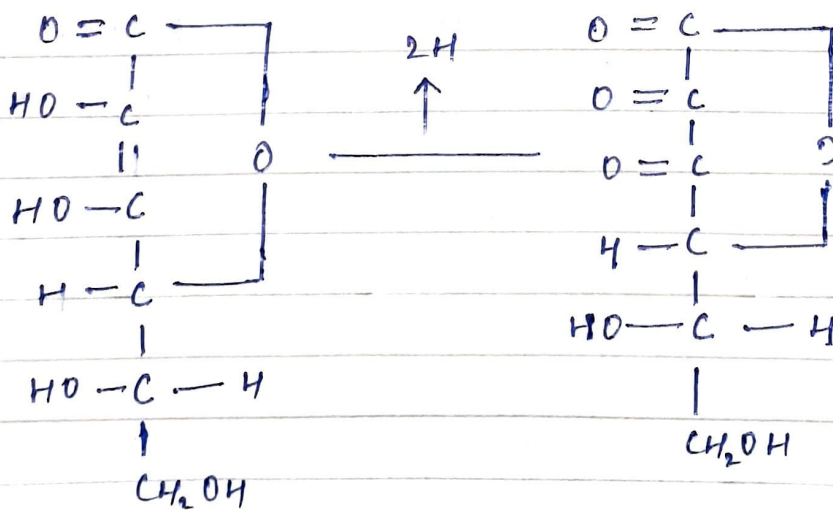 O = C
HO - C
||
HO - C
O
H - C
HO - C - H
CH₂OH
2H
↑
O = C
O = C
O = C
H - C
HO - C - H
CH₂OH